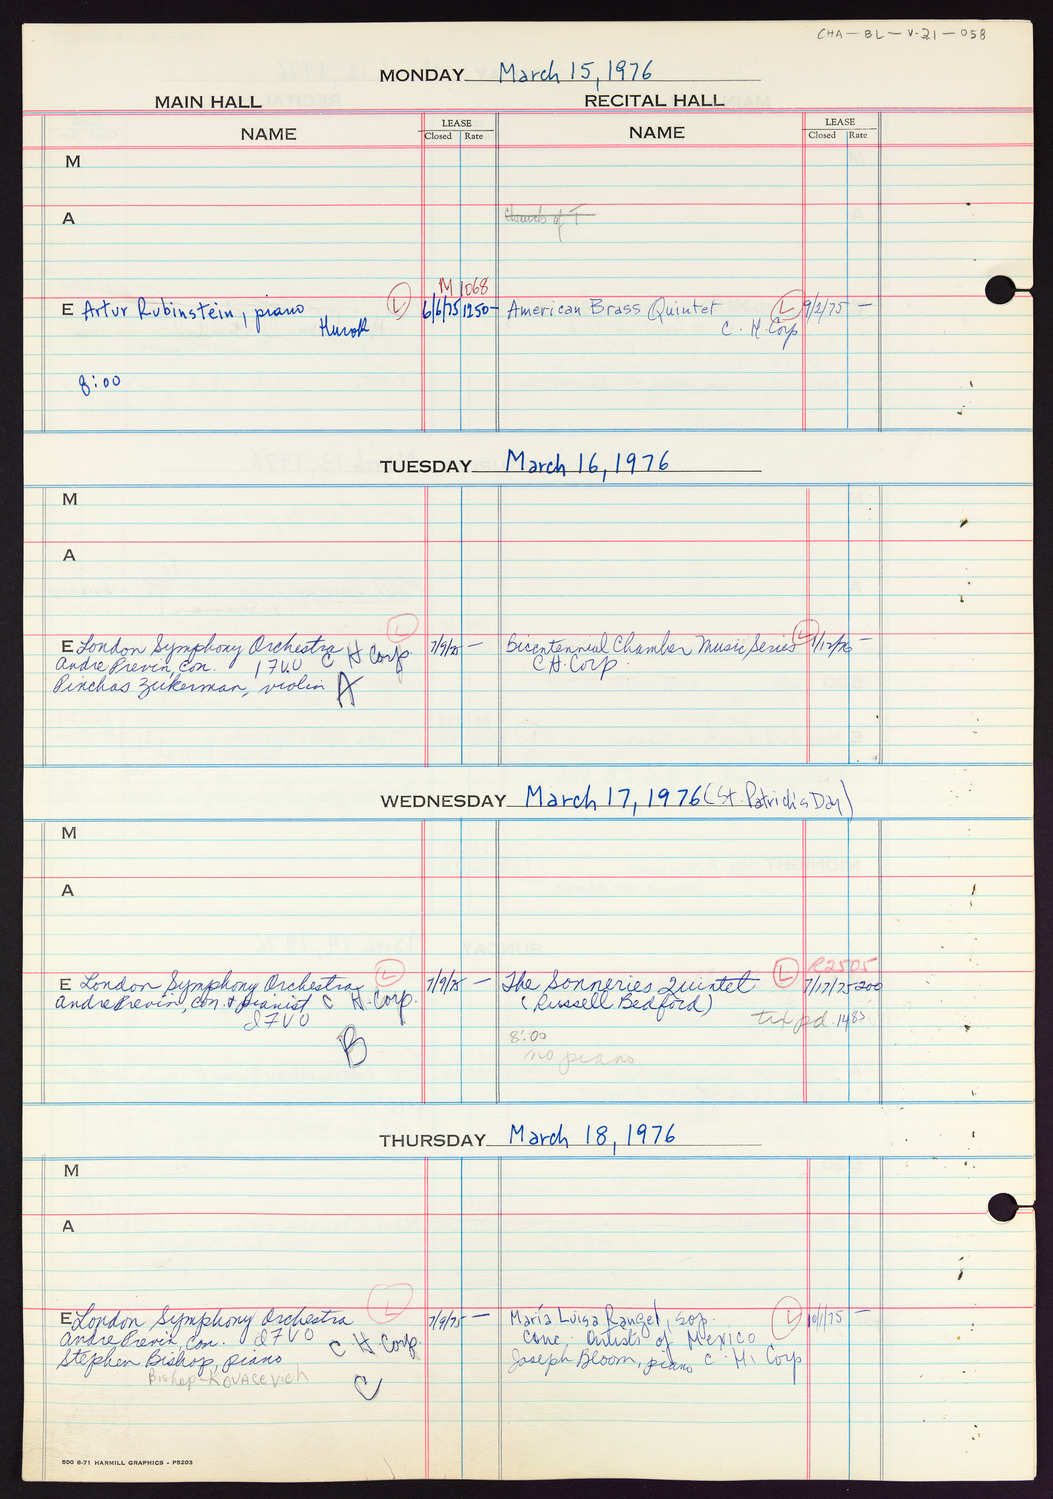 CHA-BL-V-21-058
MONDAY March 15, 1976
MAIN HALL RECITAL HALL
NAME LEASE Closed Rate NAME LEASE Closed Rate
M
A Church of T
M 1068
E Artur Rubinstein, piano L 6/6/75 1250- American Brass Quintet L 9/2/75 —
Hurok C. H. Corp
8:00
TUESDAY March 16, 1976
M
A
E London Symphony Orchestra C H Corp. L 7/9/75 — Bicentennial Chamber Music Series L 1/12/76 —
Andre Previn, con. C H. Corp.
Pinchas Zukerman, violin A
WEDNESDAY March 17, 1976 (St. Patrick's Day)
M
A
R2505
E London Symphony Orchestra L 7/9/75 — The Sonneries Quintet L 7/17/75 200
Andre Previn, con. + pianist C H. Corp. (Russell Bedford)
tax pd.
B 8:00
no piano
THURSDAY March 18, 1976
M
A
E London Symphony Orchestra L 7/9/75 — María Luisa Rangel, sop. L 10/1/75 —
Andre Previn, con. C H Corp. Conc. Artists of Mexico
Stephen Bishop, piano Joseph Bloom, piano C. H. Corp
Bishop-Kovacevich C
500 6-71 HARMILL GRAPHICS - P5203